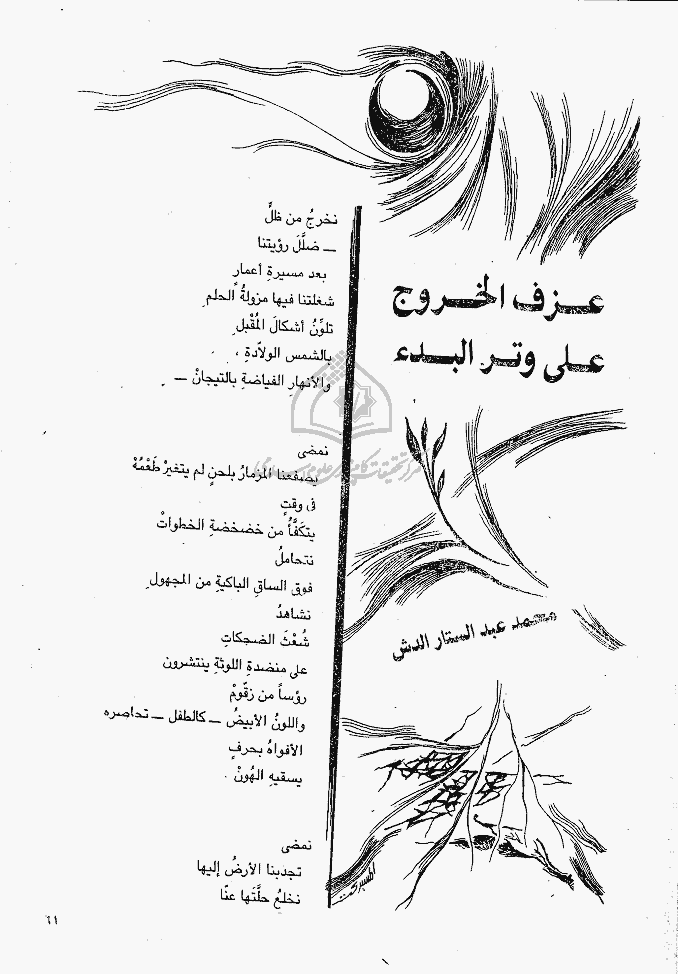 عزف الخروج
على وتر البدء
محمد عبد الستار الدش
نخرجُ من ظلٍّ
ــ ضلَّلَ رؤيتنا
بعد مسيرةِ أعمارٍ
شغلتنا فيها مزولةُ الحلمِ
تلوِّنُ أشكالَ المُقْبلِ
بالشمسِ الولاَّدةِ ،
والأنهارِ الفياضةِ بالتيجانْ ــ .
نمضى
يصفعنا المزمارُ بلحنٍ لم يتغيرْ طَعْمُهْ
فى وقتٍ
يتكَفَّأُ من خضخضةِ الخطواتْ
نتحاملُ
فوق الساقِ الباكيةِ من المجهولِ
نشاهدُ
شُعْثَ الضحكاتِ
على منضدةِ اللوثةِ ينتشرون
رؤساً من زقّومْ
واللونُ الأبيضُ ــ كالطفل ــ تحاصره
الأفواهُ بحرفٍ
يسقيهِ الهُونْ .
نمضى
تجذبنا الأرضُ إليها
نخلعُ حلَّتَها عنّا
٦١